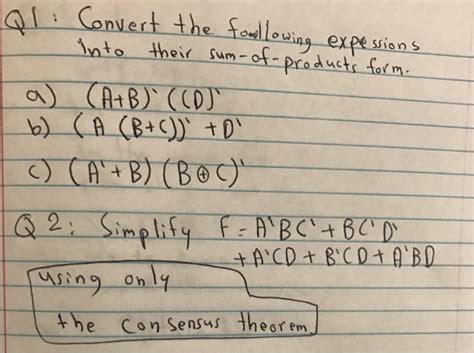 Q1: Convert the following expessions
into their sum-of-products form.
a) (A+B)` ((CD)`
b) (A (B+C))` + D`
c) (A`+B) (B⊕C)`
Q2: Simplify F = A`BC` + BC`D`
+ A`CD + B`CD + A`BD
using only
the consensus theorem